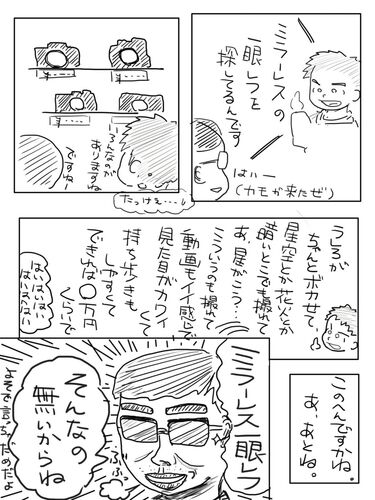 ミラーレスの
一眼レフを
探してるんです
はハー
(カモが来たぜ)
いろんなのが
ありますね
ですねー
たっけぇ…
うしろが
ちゃんとボカせて、
星空とか花火とか
暗いとこでも撮れて
あ、星がこう…?
こういうのも撮れて
動画もイイ感じで
見た目がカワイくて
持ち歩きも
しやすくて
できれば〇万円
くらいで
はいはいはい
はいはいはい
このへんですかね。
あ、あとね。
ミラーレス一眼レフ
そんなの
無いからね
ふふ
よそで言っちゃだめだよ